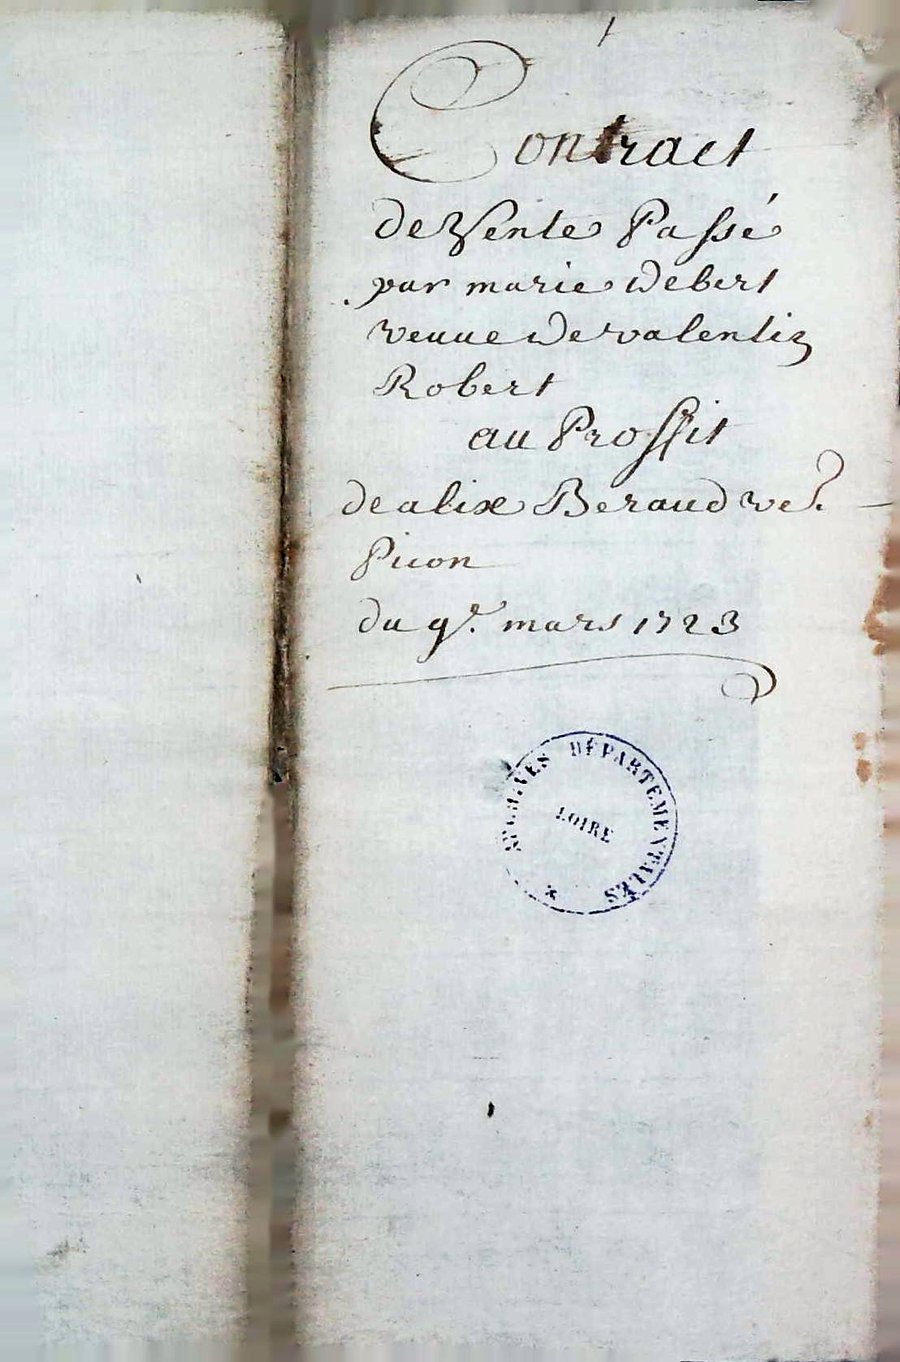 Contract
de Vente Passé
par marie debert
veuue de valentin
Robert
au Proffit
de alix Beraud ve.
Picon
du 9e. mars 1723
ARCHIVES DÉPARTEMENTALES
LOIRE
*